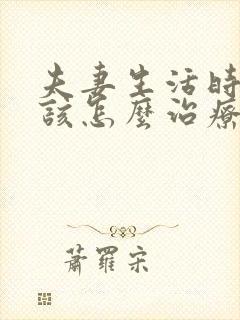 夫妻生活時
該怎麼治療
蕭羅宋